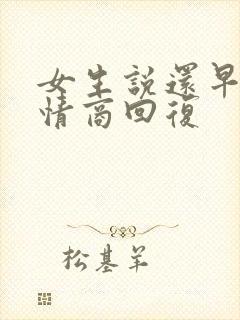 女生説還早
情商回復
松基羊